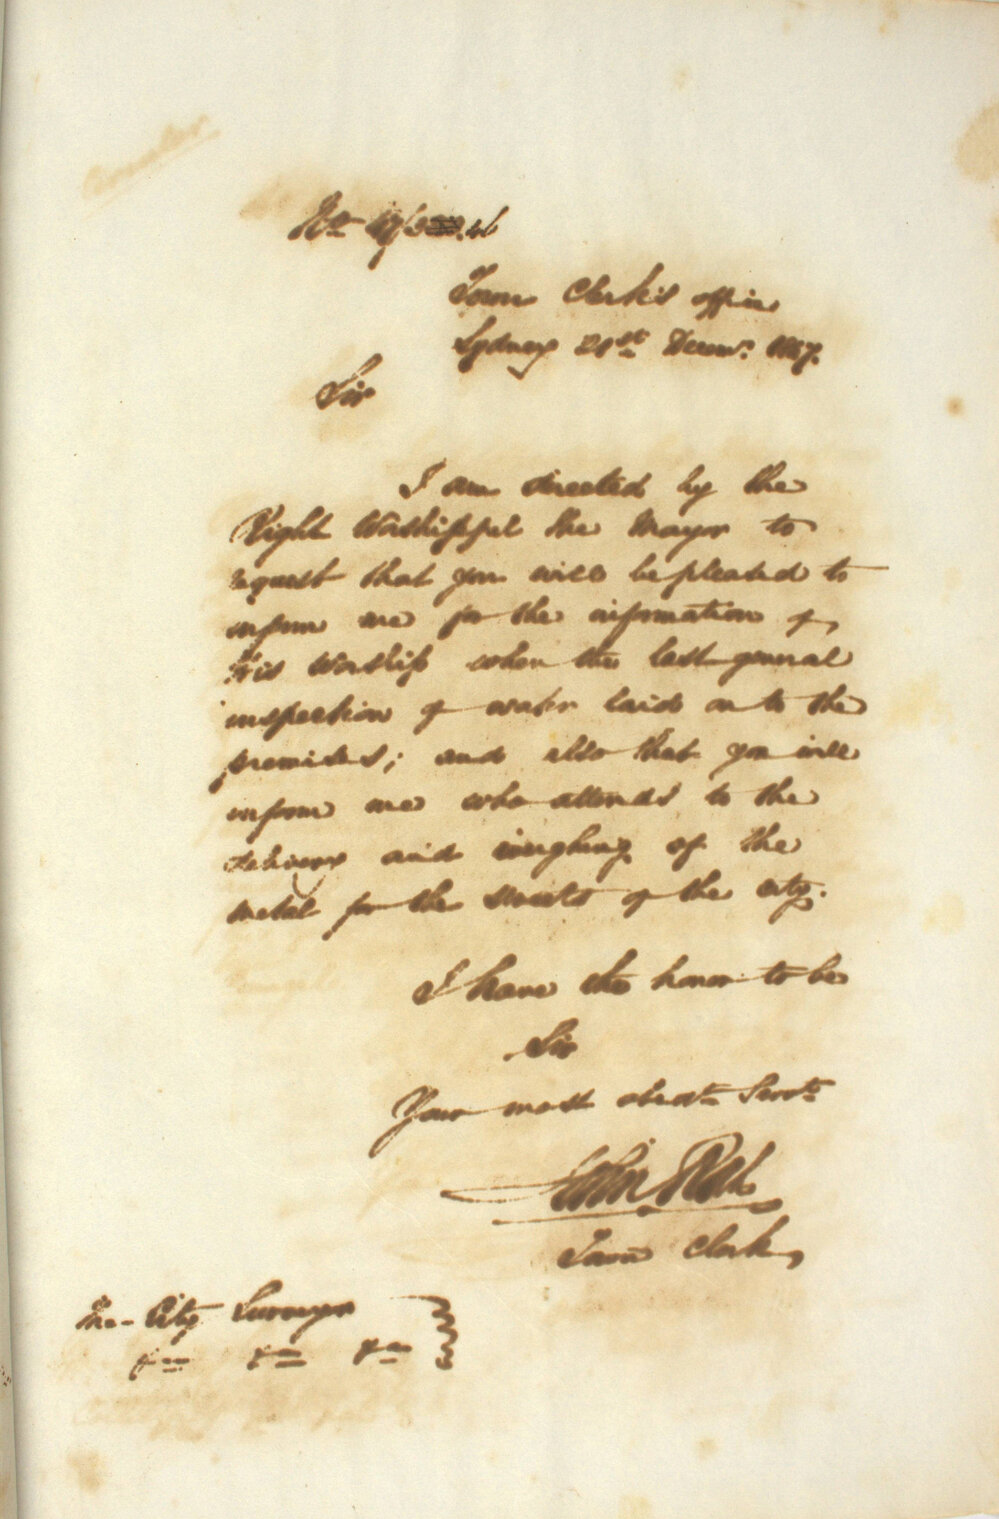 Town Clerk's office
Sydney 21st Decemr. 1857.
Sir
I am directed by the
Right Worshipful the Mayor to
request that you will be pleased to
inform me for the information of
His Worship when the last general
inspection of water laid on to the
premises; and also that you will
inform me who attends to the
delivery and weighing of the
metal for the streets of the city.
I have the honor to be
Sir
Your most obedt. Servt.
John Rae
Town Clerk,
The City Surveyor
&c &c &c